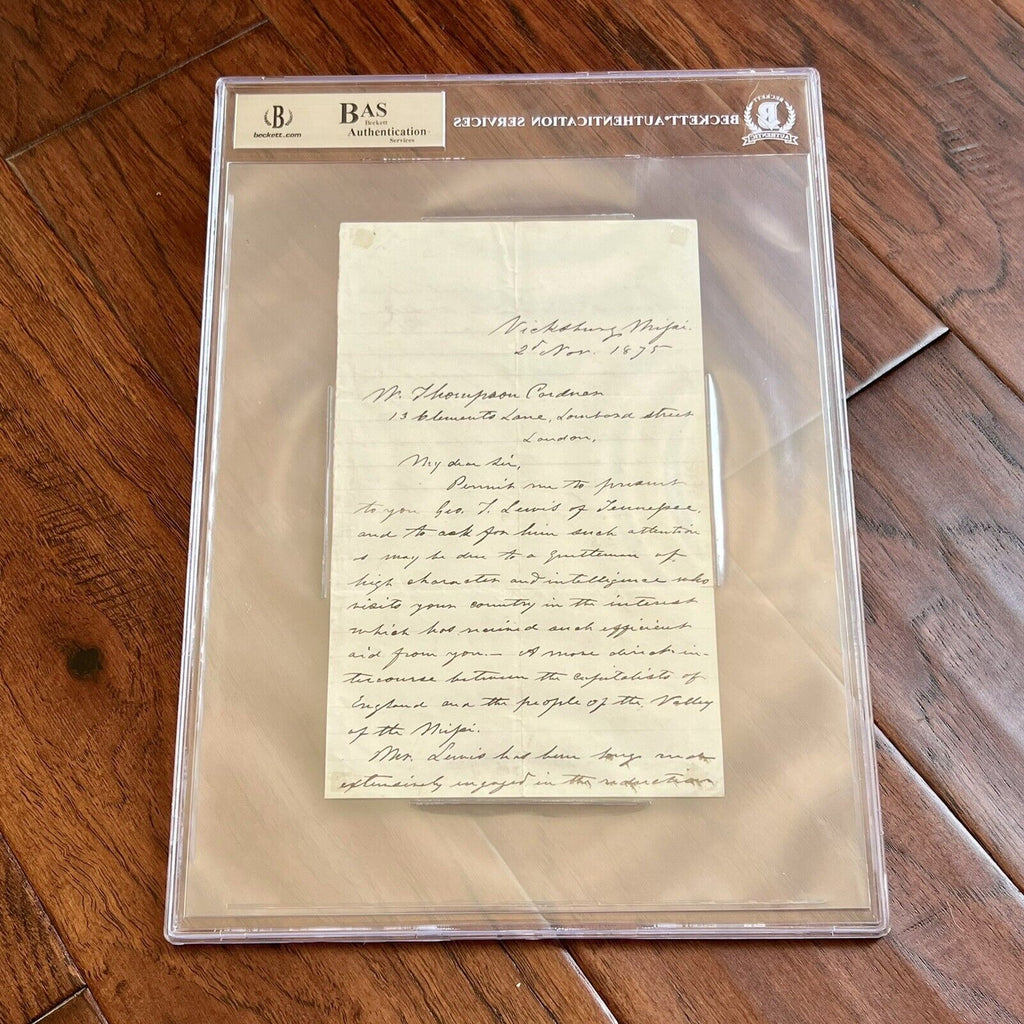 B
beckett.com
BAS
Beckett
Authentication
Services
BECKETT AUTHENTICATION SERVICES
BECKETT
B
AUTHENTIC
Vicksburg Missi.
2d Nov. 1875
W. Thompson Corduan
13 Clements Lane, Lombard street
London,
My dear Sir,
Permit me to present
to you Geo. T. Lewis of Tennessee,
and to ask for him such attention
as may be due to a gentleman of
high character and intelligence who
visits your country in the interest
which has received such efficient
aid from you.— A more direct in-
tercourse between the capitalists of
England and the people of the Valley
of the Missi.
Mr. Lewis has been long and
extensively engaged in the